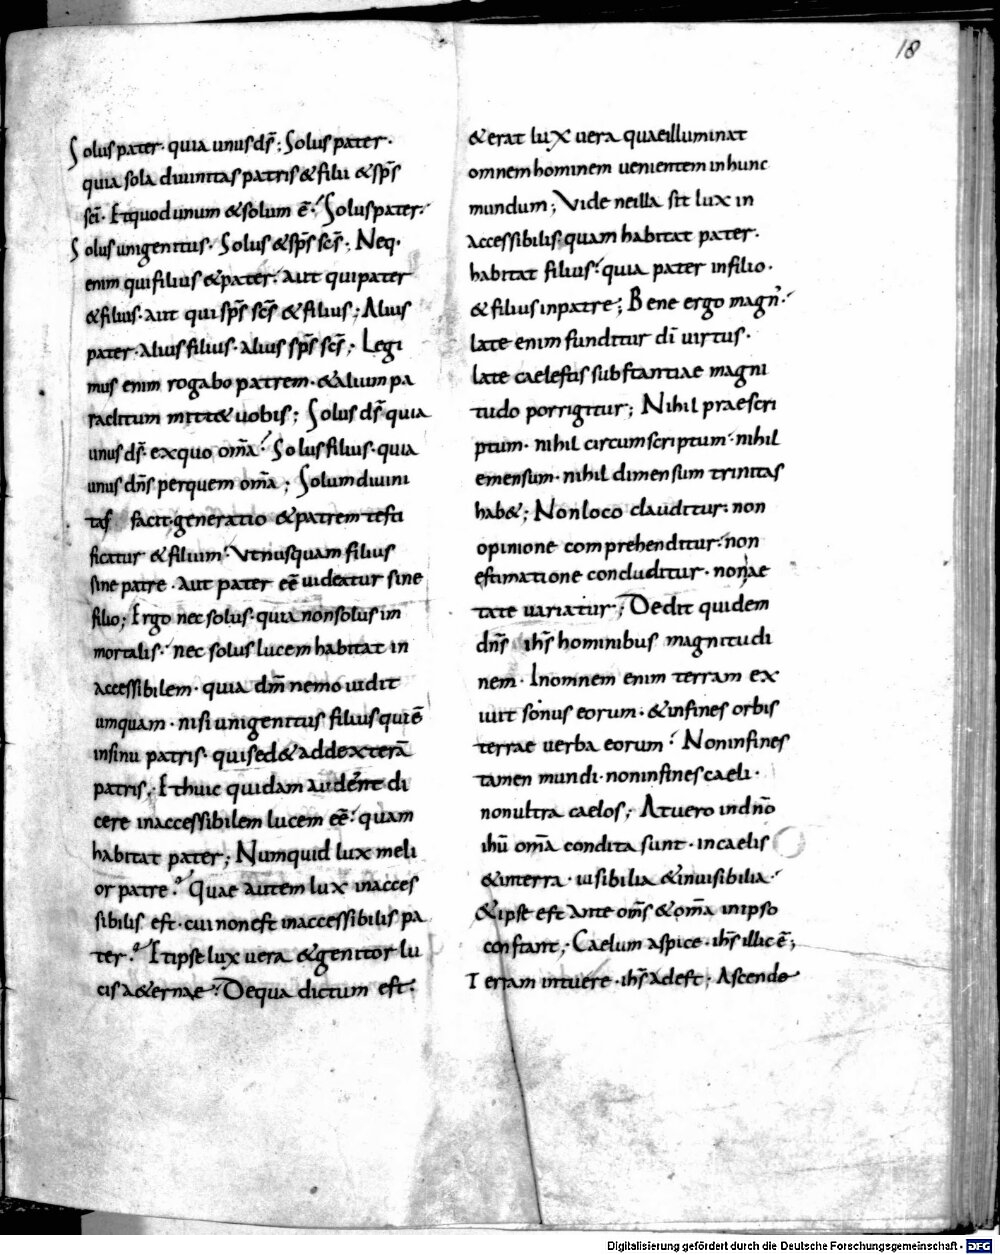 18
Solus pater· quia unus ds̄; Solus pater·
quia sola diuinitas patris & filii & sp̄s
sc̄i· Et quod unum & solum ē· Solus pater·
Solus unigenitus· Solus & sp̄s sc̄s· Neq·
enim qui filius & pater· aut qui pater
& filius· aut qui sp̄s sc̄s & filius; Alius
pater· alius filius· alius sp̄s sc̄s; Legi
mus enim rogabo patrem· & alium pa
raclitum mitt& uobis; Solus ds̄ quia
unus ds̄· ex quo om̄a· Solus filius· quia
unus dn̄s per quem om̄a; Solum diuini
tas facit· generatio & patrem testi
ficatur & filium· Ut nusquam filius
sine patre· aut pater eē uideatur sine
filio; Ergo nec solus· quia non solus im
mortalis· nec solus lucem habitat in
accessibilem· quia dm̄ nemo uidit
umquam· nisi unigenitus filius qui ē
in sinu patris· qui sed& ad dexterā
patris; Et huic quidam audent di
cere inaccessibilem lucem eē· quam
habitat pater; Numquid lux meli
or patre? Quae autem lux inacces
sibilis est· cui non est inaccessibilis pa
ter? Et ipse lux uera & genitor lu
cis a&ernae· De qua dictum est·
& erat lux uera quae illuminat
omnem hominem uenientem in hunc
mundum; Vide ne illa sit lux in
accessibilis· quam habitat pater·
habitat filius· quia pater in filio·
& filius in patre; Bene ergo magn·
late enim funditur dī uirtus·
late caelestis substantiae magni
tudo porrigitur; Nihil praescri
ptum· nihil circumscriptum· nihil
emensum· nihil dimensum trinitas
hab&; Non loco clauditur· non
opinione comprehenditur· non
estimatione concluditur· non ae
tate uariatur; Dedit quidem
dn̄s ihs̄ hominibus magnitudi
nem· In omnem enim terram ex
iuit sonus eorum· & in fines orbis
terrae uerba eorum· Non in fines
tamen mundi· non in fines caeli·
non ultra caelos; At uero in dn̄o
ihū om̄a condita sunt· in caelis
& in terra· uisibilia & inuisibilia·
& ipse est ante om̄s & om̄a in ipso
constant; Caelum aspice· ihs̄ illic ē;
Terram intuere· ihs̄ adest; Ascende
Digitalisierung gefördert durch die Deutsche Forschungsgemeinschaft - DFG